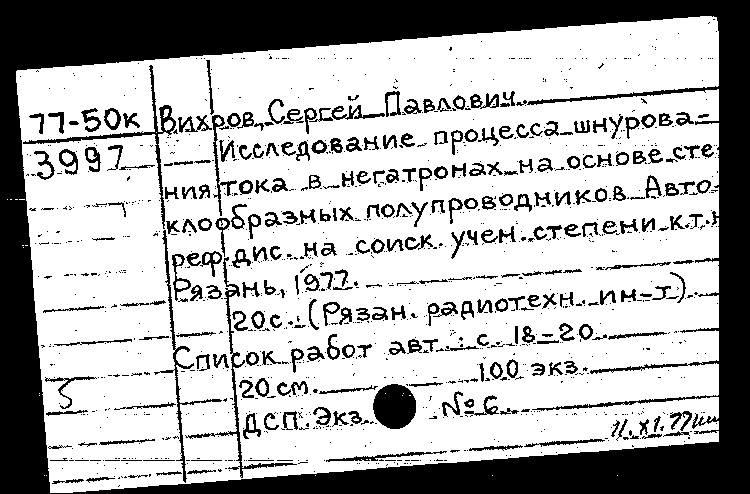 77-50к Вихров, Сергей Павлович.
3997 Исследование процесса шнурова-
ния тока в негатронах на основе сте
клообразных полупроводников Авто
реф.дис. на соиск. учен. степени к.т.н
Рязань, 1977.
20с. (Рязан. радиотехн. ин-т).
Список работ авт.: с. 18-20.
5 20 см. 100 экз.
ДСП. Экз. № 6.
11.XI.77